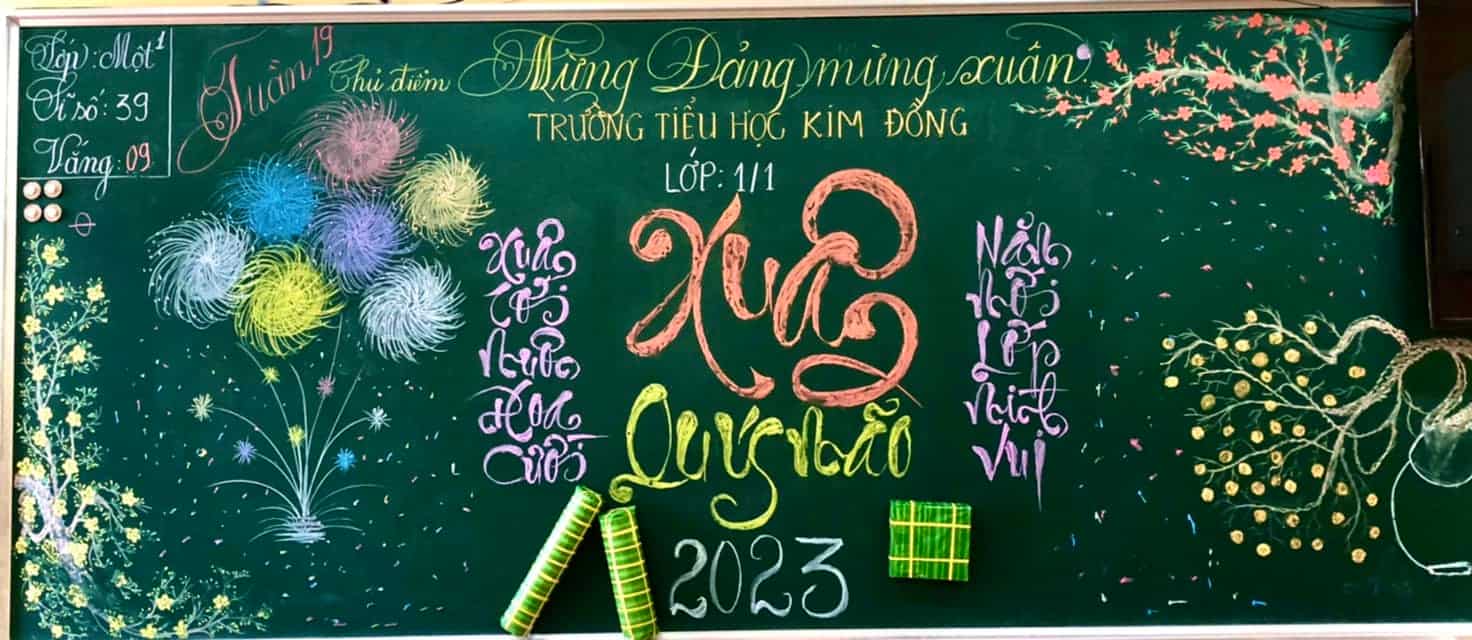 Lớp: Một¹
Sĩ số: 39
Vắng: 09
Tuần 19
Chủ điểm Mừng Đảng mừng xuân
TRƯỜNG TIỂU HỌC KIM ĐỒNG
LỚP: 1/1
Xuân
Quý Mão
2023
Xuân
Tới
Nước
Hoa
Cười
Năm
Mới
Lớp
Mình
Vui